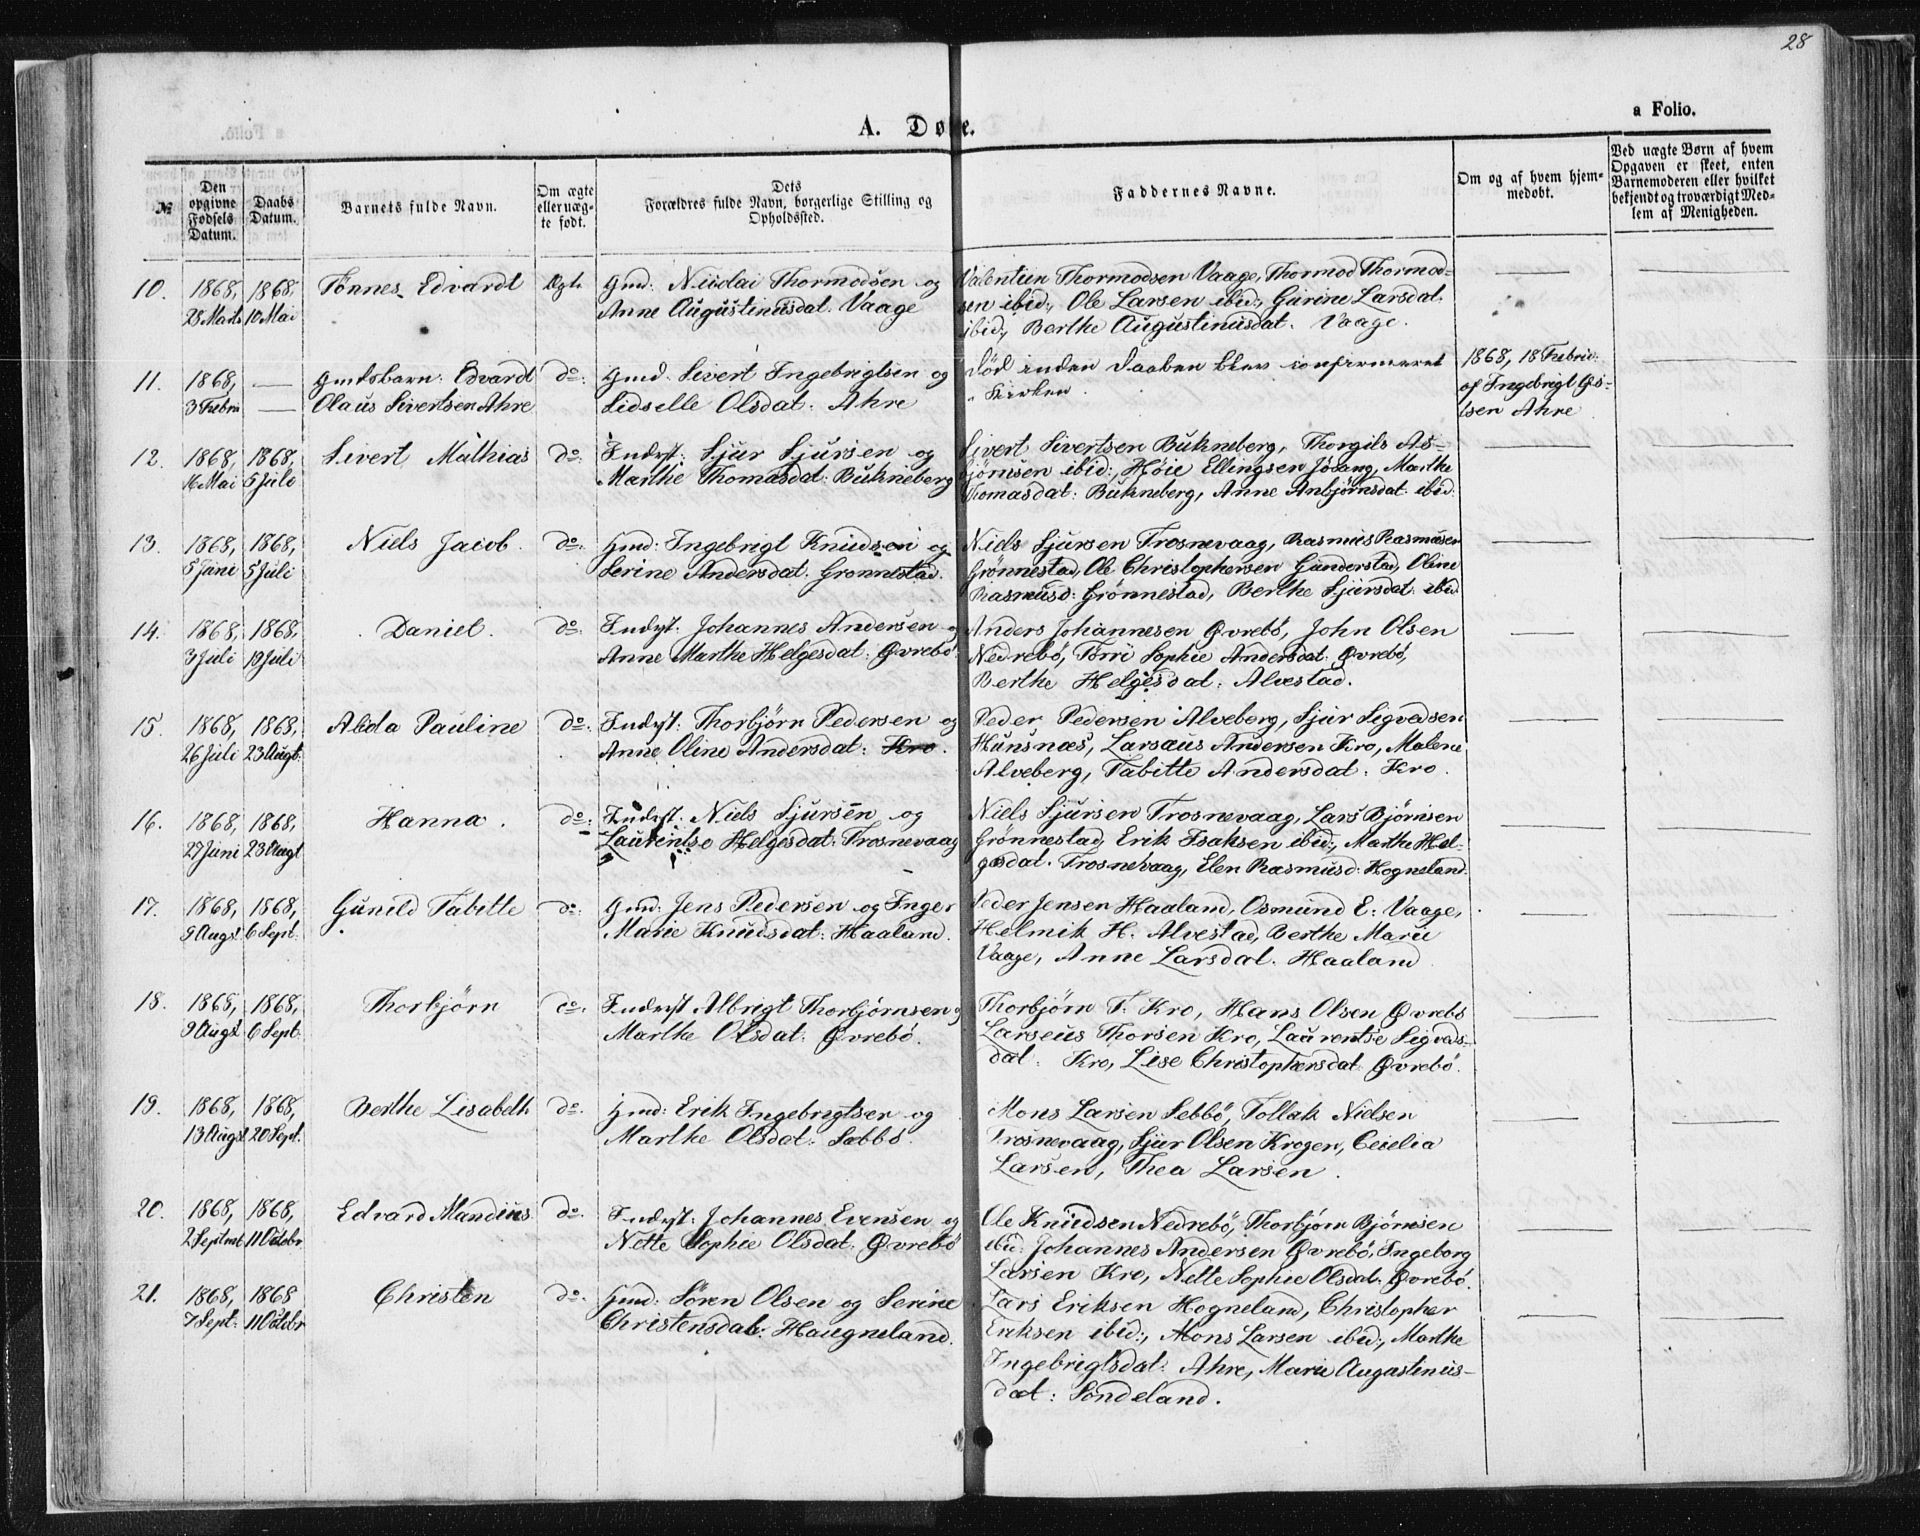 28
a Folio.
A. Døbte.
№
Den opgivne Fødsels Datum.
Daabs Datum.
Barnets fulde Navn.
Om ægte eller uægte født.
Dets
Forældres fulde Navn, borgerlige Stilling og Opholdssted.
Faddernes Navne.
Om og af hvem hjemmedøbt.
Ved uægte Børn af hvem
Opgaven er skeet, enten
Barnemoderen eller hvilket
bekjendt og troværdigt Med-
lem af Menigheden.
10. 1868, 1868, Tønnes Edvardt Ægt. Gmd: Nicolai Thormodsen og Valentiin Thormodsen Vaage, Thormod Thormod-
28 Marts 10 Mai Anne Augustinusdat. Vaage sen ibid:, Ole Larsen ibid:, Gurine Larsdat.
ibid:, Berthe Augustinusdat. Vaage.
11. 1868, — Gmdsbarn: Edvardt do: Gmd. Sivert Ingebrigtsen og Død inden Daaben blev confirmeret 1868, 18 Febr:
3 Febr — Olaus Sivertsen Ahre Sidselle Olsdat. Ahre i Kirken. af Ingebrigt
sen Ahre
12. 1868, 1868, Sivert Mathias do: Indst: Sjur Sjursen og Sivert Sivertsen Bukneberg, Thorgils As-
16 Mai 5 Juli Marthe Thomasdat: Bukneberg bjørnsen ibid:, Høie Ellingsen Jøsang, Marthe
Thomasdat: Bukneberg, Anne Anbjørnsdat: ibid:
13. 1868, 1868, Niels Jacob. do: Gmd: Ingebrigt Knudsen og Niels Sjursen Trosnevaag, Rasmus Rasmusen
5 Juni 5 Juli Serine Andersdat. Grønnestad. Grønnestad, Ole Christophersen Gunderstad, Oline
Rasmusd: Grønnestad, Berthe Sjursdat: ibid.
14. 1868, 1868, Daniel. do: Indst: Johannes Andersen og Anders Johannesen Øvrebø, John Olsen
3 Juli 19 Juli Anne Marthe Helgesdat: Øvrebø. Nedrebø, Torri Sophie Andersdat: Øvrebø,
Berthe Helgesdat: Alvestad.
15. 1868, 1868, Alida Pauline do: Indst: Thorbjørn Pedersen og Peder Pedersen Alveberg, Sjur Sigvedsen
26 Juli 23 Augt. Anne Oline Andersdat: Kro. Hunsnæs, Larsæus Andersen Kro, Malene
Alveberg, Tabitte Andersdat: Kro.
16. 1868, 1868, Hanna. do: Indst. Niels Sjursen og Niels Sjursen Trosnevaag, Lars Bjørnsen
27 Juni 23 Augt Laurentse Helgesdat: Trosnevaag Grønnestad, Erik Isaksen ibid:, Marthe Hel-
gesdat. Trosnevaag, Elen Rasmusd: Hogneland.
17. 1868, 1868, Gunild Tabitte do: Gmd: Jens Pedersen og Inger Peder Jensen Haaland, Osmund E: Vaage,
9 Augt 6 Sept. Marie Knudsdat: Haaland. Helmik H. Alvestad, Berthe Marie
Vaage, Anne Larsdat. Haaland
18. 1868, 1868, Thorbjørn do: Indst Albrigt Thorbjørnsen og Thorbjørn T. Kro, Hans Olsen Øvrebø
9 Augt 6 Sept. Marthe Olsdat: Øvrebø. Larseus Thorsen Kro, Laurentse Sigveds-
dat: Kro, Lise Christophersdat: Øvrebø.
19. 1868, 1868, Berthe Lisabeth do. Gmd: Erik Ingebrigtsen og Mons Larsen Sebbø, Tollak Nielsen
13 Augt 20 Sept. Marthe Olsdat: Sæbbø. Trosnevaag, Sjur Olsen Krogen, Cecelia
Larsen, Thea Larsen.
20. 1868, 1868, Edvard Mandius do. Indst: Johannes Evensen og Ole Knudsen Nedrebø, Thorbjørn Bjørnsen
2 Septmt 11 Octobr Nette Sophie Olsdat: Øvrebø ibid: Johannes Andersen Øvrebø, Ingeborg
Larsen Kro, Nette Sophie Olsdat: Øvrebø.
21. 1868, 1868 Christen do. Gmd: Søren Olsen og Serine Lars Eriksen Hogneland, Christopher
7 Sept: 11 Octobr Christensdat: Haugneland. Eriksen ibid:, Mons Larsen ibid:, Marthe
Ingebrigtsdat: Ahre, Marie Augastinus-
dat: Søndeland.